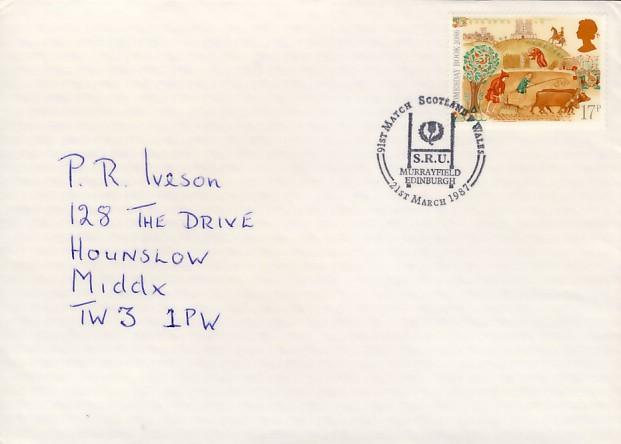 DOMESDAY BOOK 1086
17P
91ST MATCH SCOTLAND V WALES
S.R.U.
MURRAYFIELD
EDINBURGH
21ST MARCH 1987
P. R. Iveson
128 THE DRIVE
HOUNSLOW
Middx
TW3 1PW